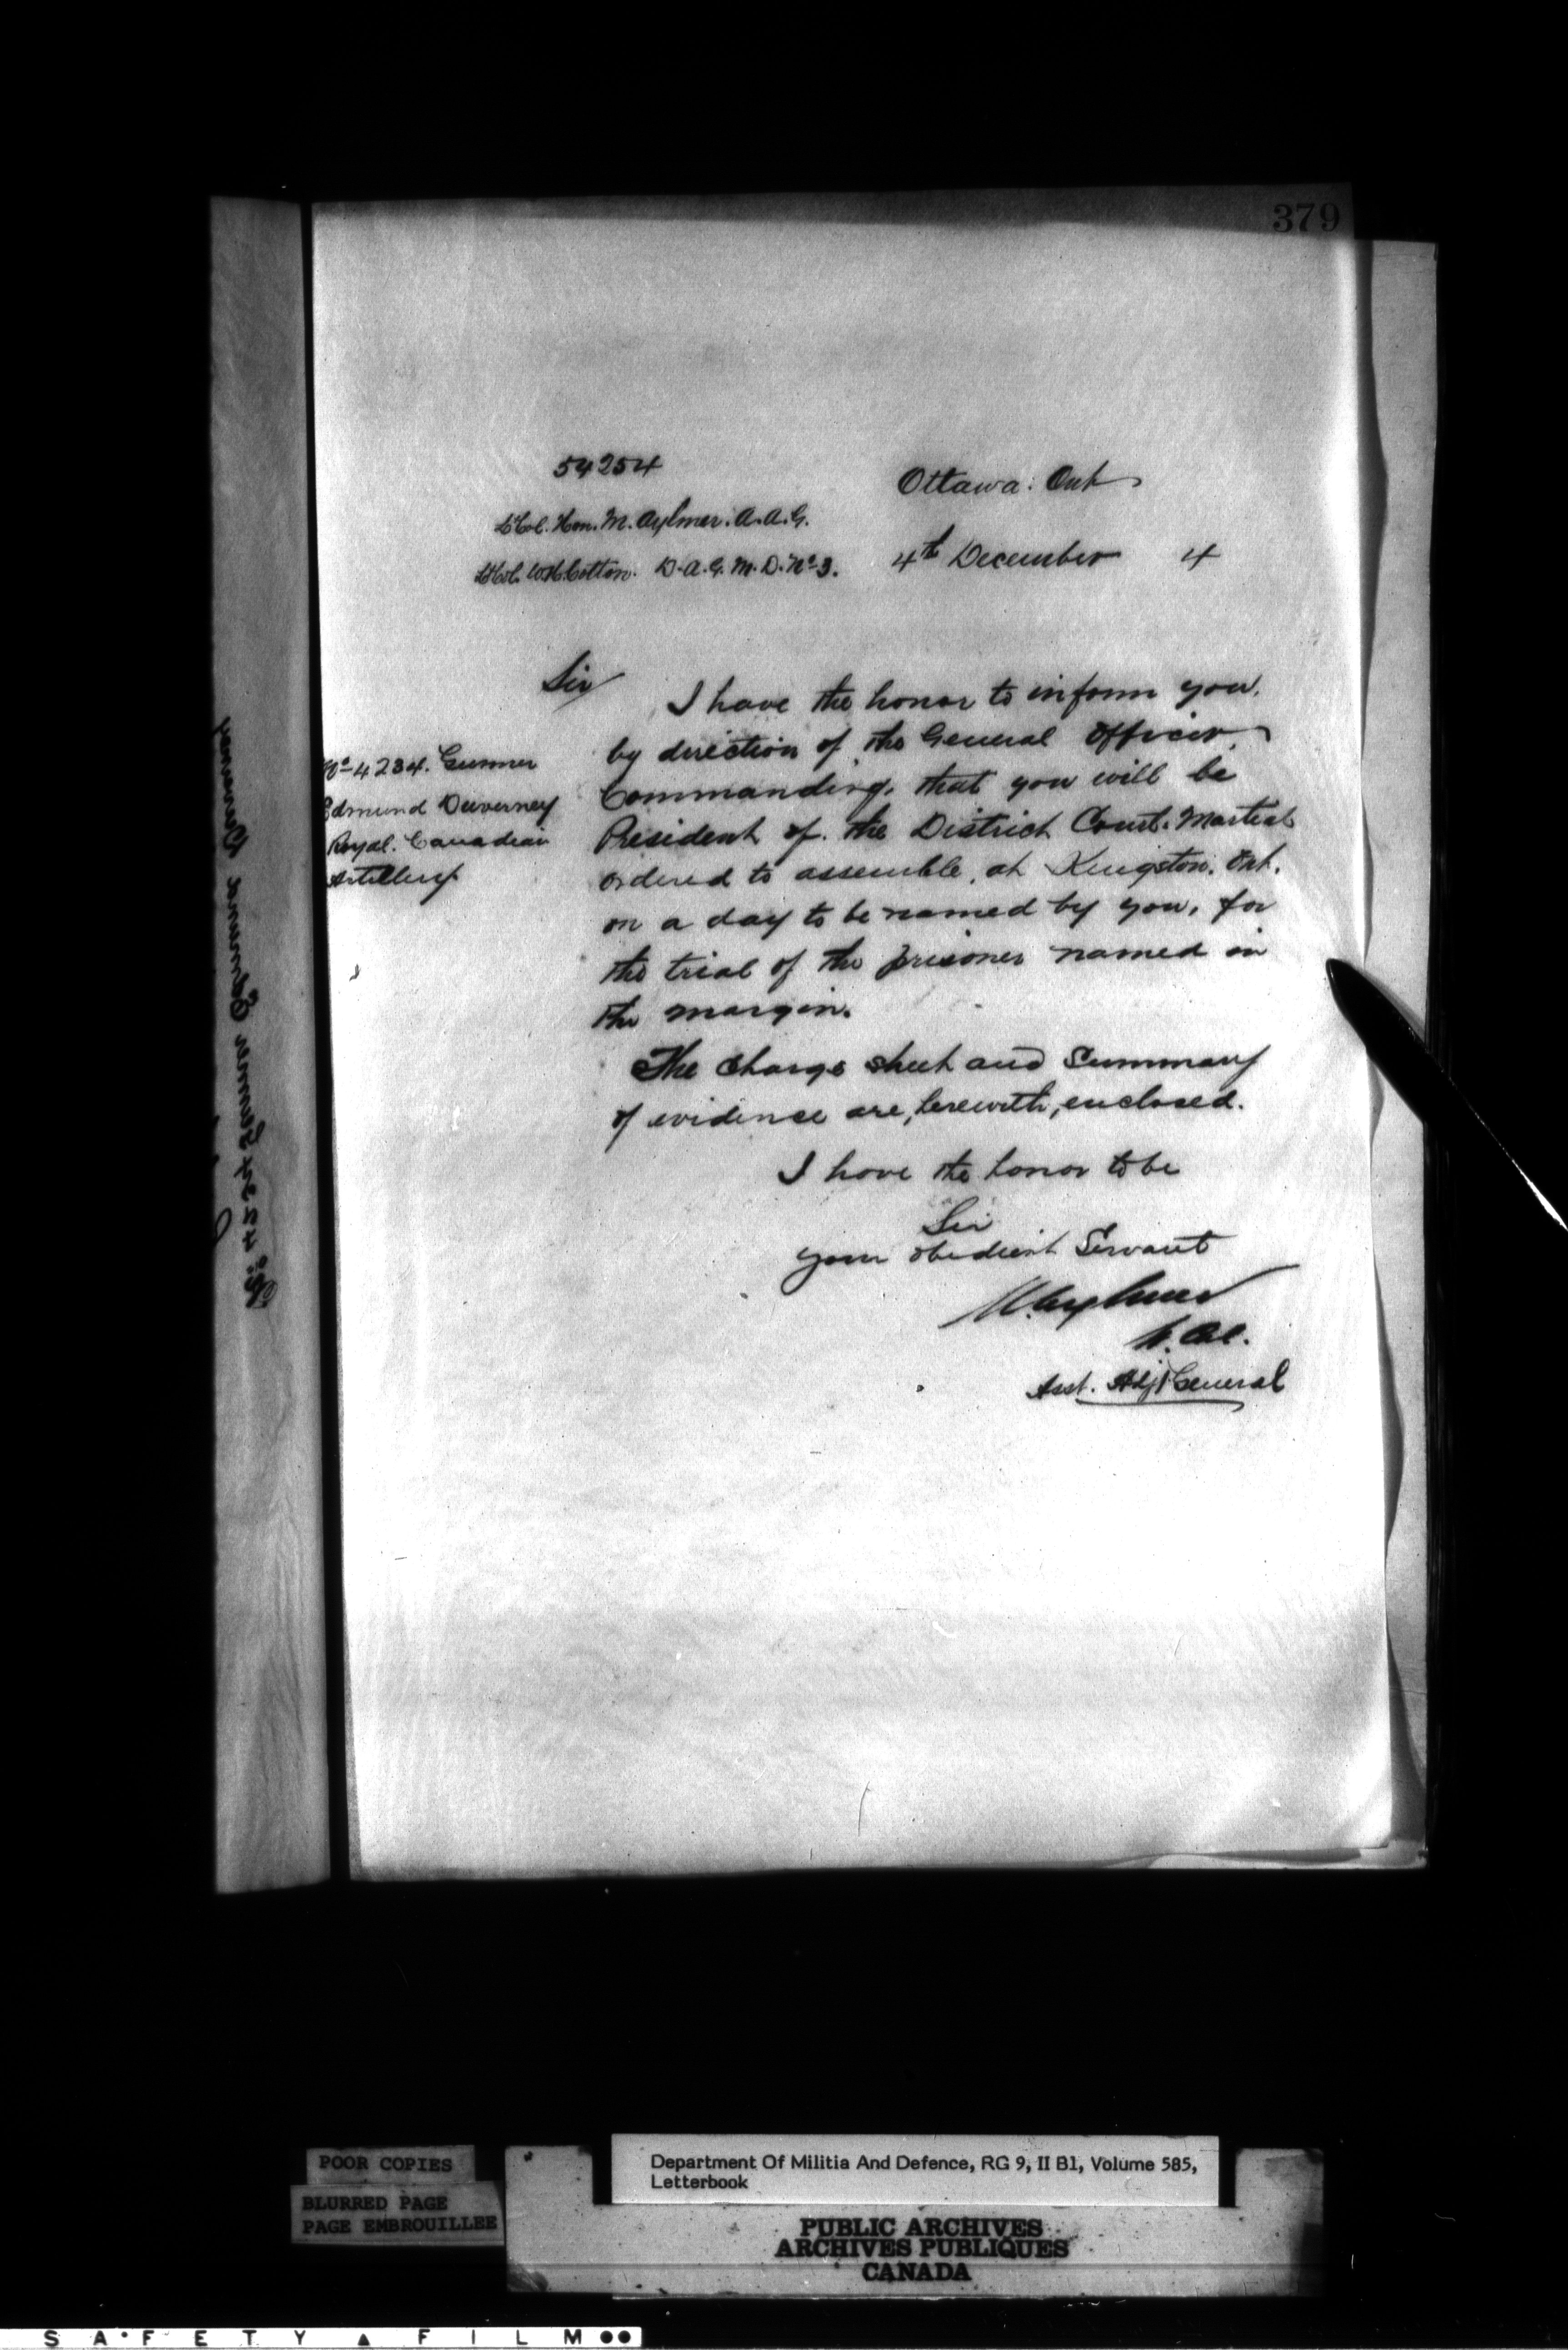 379
54254
Ottawa: Ont
Lt Col. Hon. M. Aylmer. A.A.G.
Lt Col. W.H. Cotton. D.A.G. M.D. No 3.
4th December 4
Sir
I have the honor to inform you,
by direction of the General Officer,
Commanding, that you will be
President of the District Court-Martial
ordered to assemble, at Kingston, Ont.
on a day to be named by you, for
the trial of the prisoner named in
the margin.
No 4234. Gunner
Edmund Duverney
Royal Canadian
Artillery
The Charge sheet and Summary
of evidence are, herewith, enclosed.
I have the honor to be
Sir
your obedient Servant
M. Aylmer
Lt. Col.
Asst. Adjt General
No 4234 Gunner Edmund Duverney
POOR COPIES
BLURRED PAGE
PAGE EMBROUILLEE
Department Of Militia And Defence, RG 9, II B1, Volume 585,
Letterbook
PUBLIC ARCHIVES
ARCHIVES PUBLIQUES
CANADA
SAFETY ▲ FILM ●●